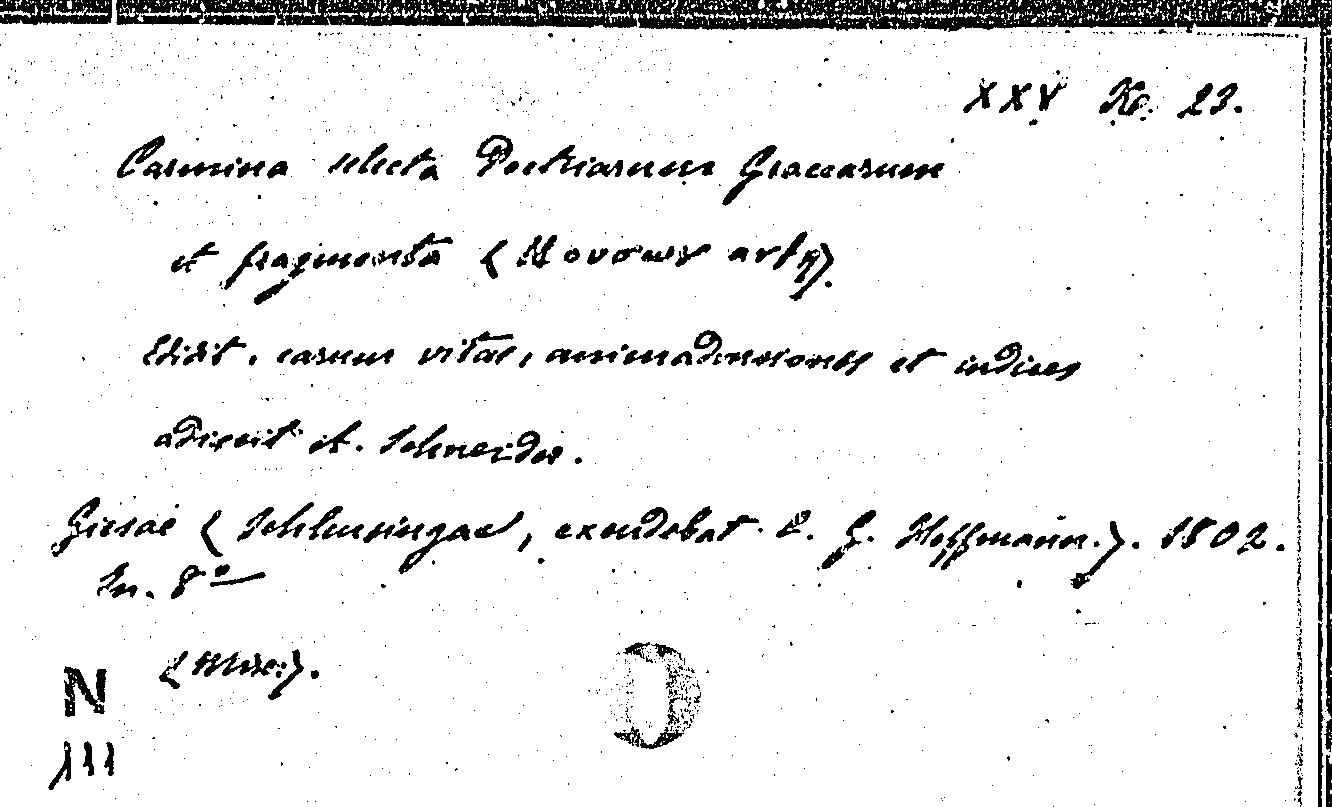 XXV Ke. 23.
Carmina selecta Poetriarum Graecarum
et fragmenta (Μουσων ανθη).
Edidit, earum vitas, animadversiones et indices
adiecit A. Schneider.
Giesae (Schleusingae, excudebat. L. G. Hoffmann.). 1802.
In. 8°
(Misc.).
N
111